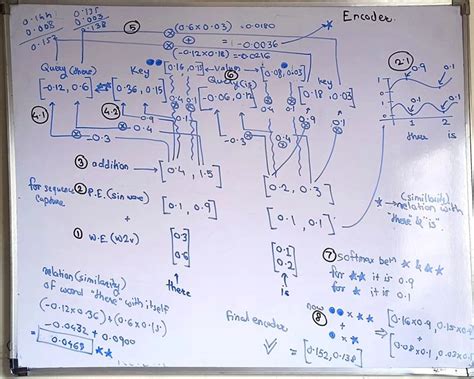 Encoder.
0.144 0.135
0.008 0.003
0.152 0.138
⑤ (0.6x0.03) = 0.0180
+ = -0.0036
(-0.12x0.18) = -0.0216
Query(there) Key [0.16, 0.15] ← Value → [0.08, 0.03] Key
⑥ Query(is)
[-0.12, 0.6] [0.36, 0.15] [-0.06, 0.12] [0.18, 0.03]
2.1
0.1 0.9
0.1 0.1
1 2
there is
4.1 4.2
0.4 0.1 0.4 0.1
0.9 0.1
-0.3 -0.4 -0.3 0.4
③ addition → [0.4, 1.5] [0.2, 0.3]
for sequence capture
② P.E. (sin wave) [0.1, 0.9] [0.1, 0.1]
+
① W.E (W2V) [0.3 0.6] [0.1 0.2]
there is
(similarity) relation with "there" & "is"
⑦ softmax bet
for it is 0.9
for it is 0.1
relation (similarity)
of word "there" with itself
(-0.12x0.36) + (0.6x0.15)
-0.0432 + 0.0900
= 0.0468
now
⑧ +
⇒ [0.16x0.9, 0.15x0.9]
+
[0.08x0.1, 0.03x0.1]
final encoder = [0.152, 0.138]